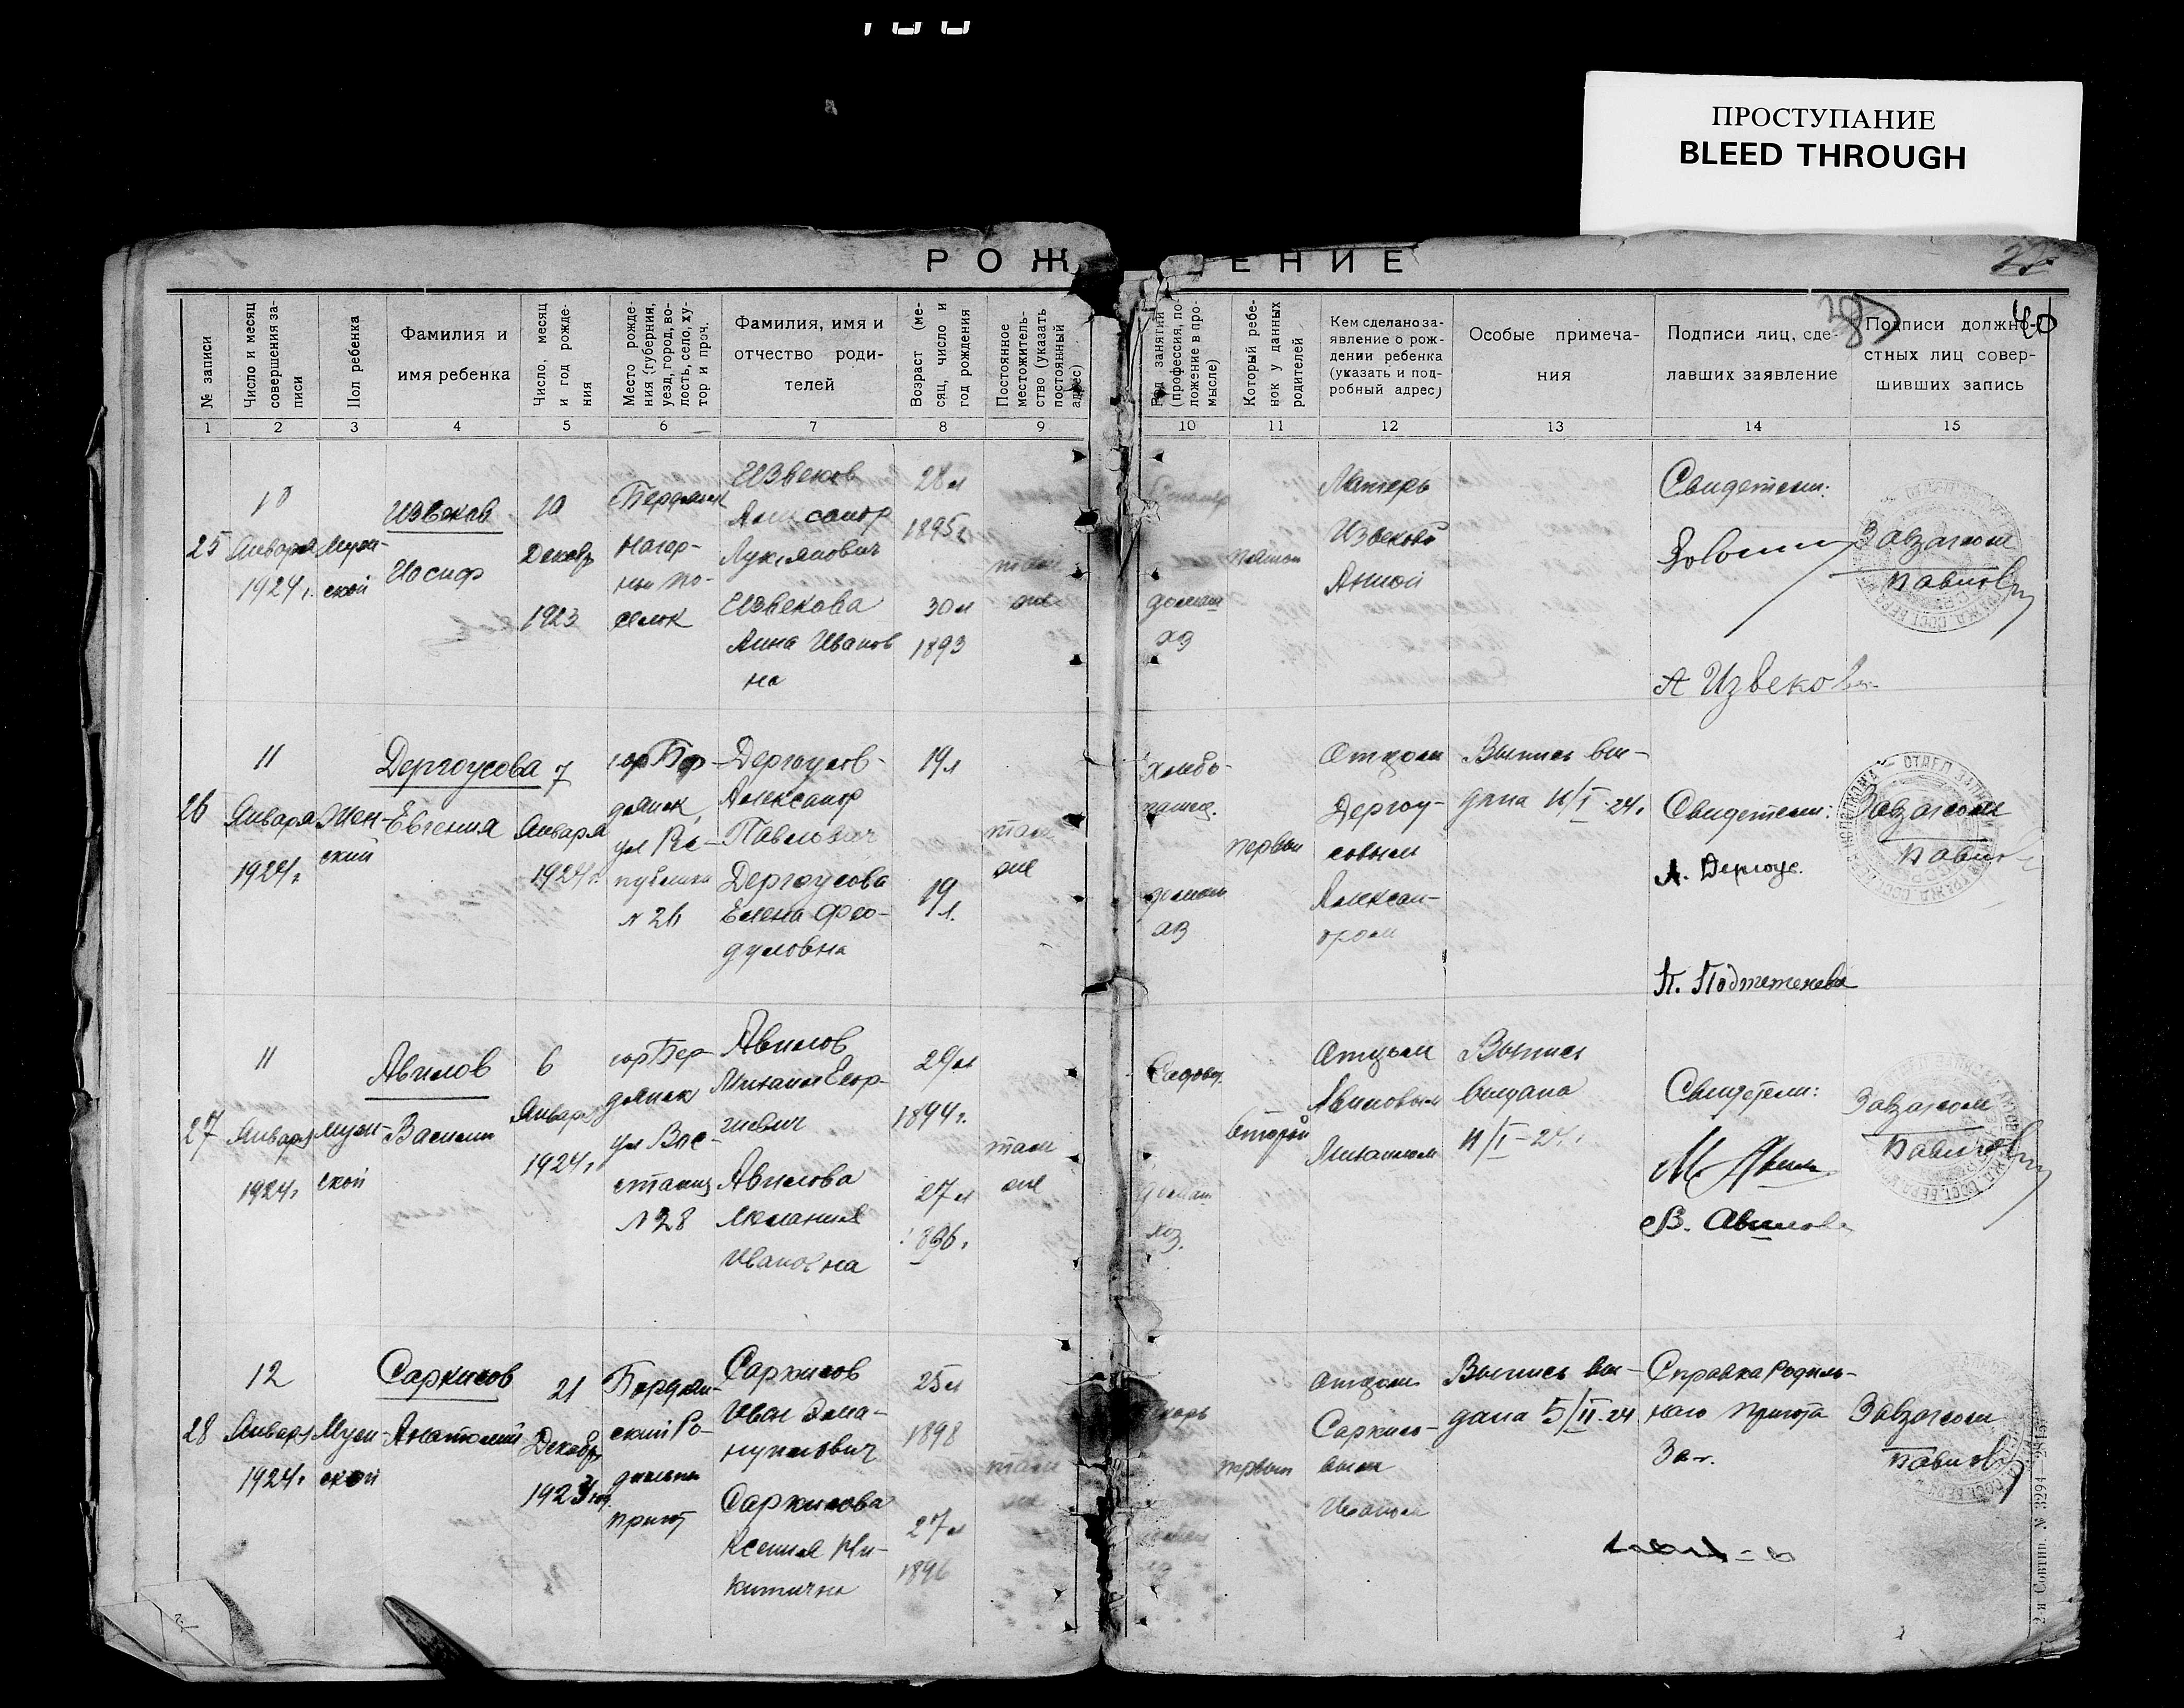 ПРОСТУПАНИЕ
BLEED THROUGH
РОЖ ЕНИЕ
40
№ записи
Число и месяц совершения записи
Пол ребенка
Фамилия и
имя ребенка
Число, месяц и год рождения
Место рождения (губерния, уезд, город, волость, село, хутор и проч.
Фамилия, имя и
отчество роди-
телей
Возраст (месяц, число и год рождения
Постоянное местожительство (указать постоянный адрес)
Род занятий (профессия, положение в промысле)
Который ребенок у данных родителей
Кем сделано за-
явление о рож-
дении ребенка
(указать и под-
робный адрес)
Особые примеча-
ния
Подписи лиц, сде-
лавших заявление
Подписи должно-
стных лиц совер-
шивших запись
1 2 3 4 5 6 7 8 9 10 11 12 13 14 15
25
10
Января
1924 г.
Муж-
ской
Извеков
Иосиф
10
Декабр
1923
Бердянск
Нагор-
ный по-
селок
Извеков
Александр
Лукьянович
Извекова
Анна Иванов
на
28 л
1895 г.
30 л
1893
там
же
домаш
хоз
пятый
Матерь
Извековой
Анной
Свидетели:
А Извекова
Завзагсом
Павлов
26
11
Января
1924 г.
Жен-
ский
Дергоусова
Евгения
7
Января
1924 г.
гор Бер-
дянск,
ул Рес-
публики
№ 26
Дергоусов
Александр
Павлович
Дергоусова
Елена Фео-
дуловна
19 л
19
л.
там
же
Хлебо-
пашец.
домаш
хоз
первый
Отцом
Дергоу-
совым
Алексан-
дром
Выпись вы-
дана 11/I-24 г.
Свидетели:
А. Дергоус.
Завзагсом
Павлов
27
11
Января
1924 г.
муж-
ской
Авилов
Василий
6
Январ
1924 г.
гор Бер-
дянск
ул Вос-
стания
№ 28
Авилов
Михаил Геор-
гиевич
Авилова
Мелания
Ивановна
29 л
1894 г.
27 л
1896 г.
там
же
Садовод.
домаш
хоз.
второй
Отцом
Авиловым
Михаилом
Выпись
выдана
11/I-24 г.
Свидетели:
В. Авилова
Завзагсом
Павлов
28
12
Январ
1924 г.
Муж-
ской
Саркисов
Анатолий
21
Декабр
1923 г.
Бердян-
ский Ро-
дильный
приют
Саркисов
Иван Эма-
нуилович
Саркисова
Ксения Ни-
китична
25 л
1898
27 л
1896
там
же
первый
Отцом
Саркисо-
вым
Иваном
Выпись вы-
дана 5/II-24
Справка Родиль-
ного приюта
Завзагсом
Павлов
2-я Совтип. № 3294